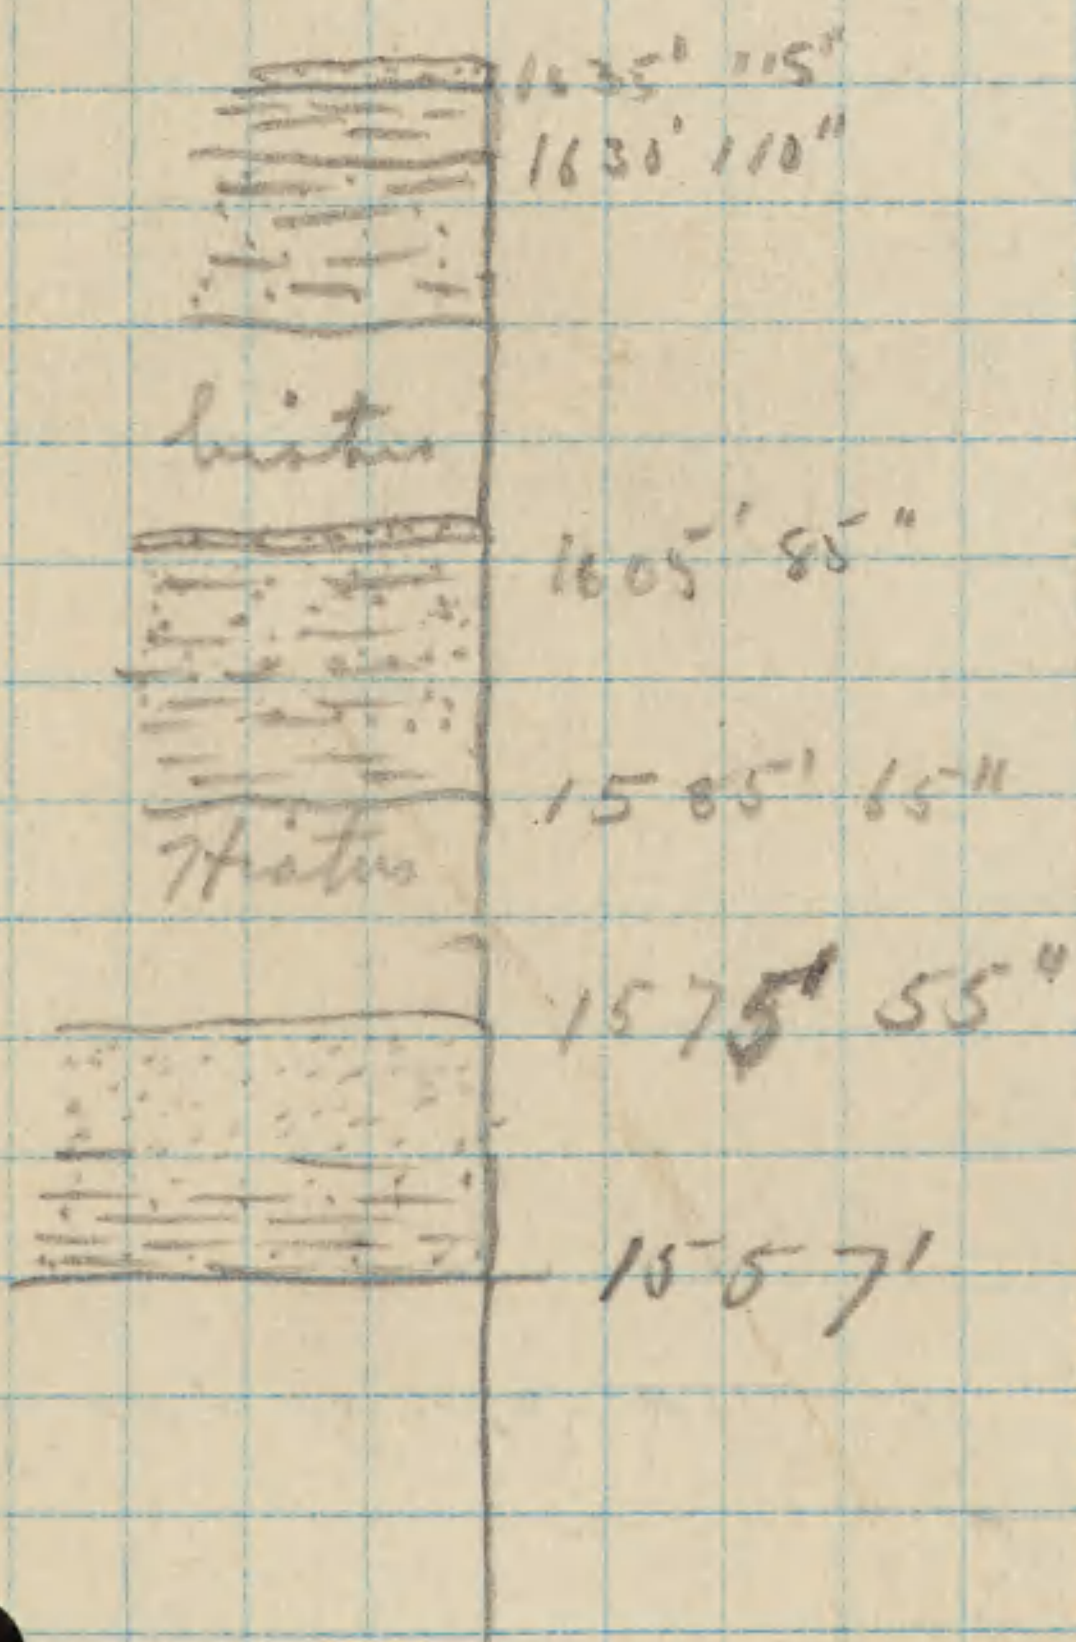 1635' 115"
1630' 110"
hiatus
1605' 85"
1585' 65"
Hiatus
1575' 55"
1557'